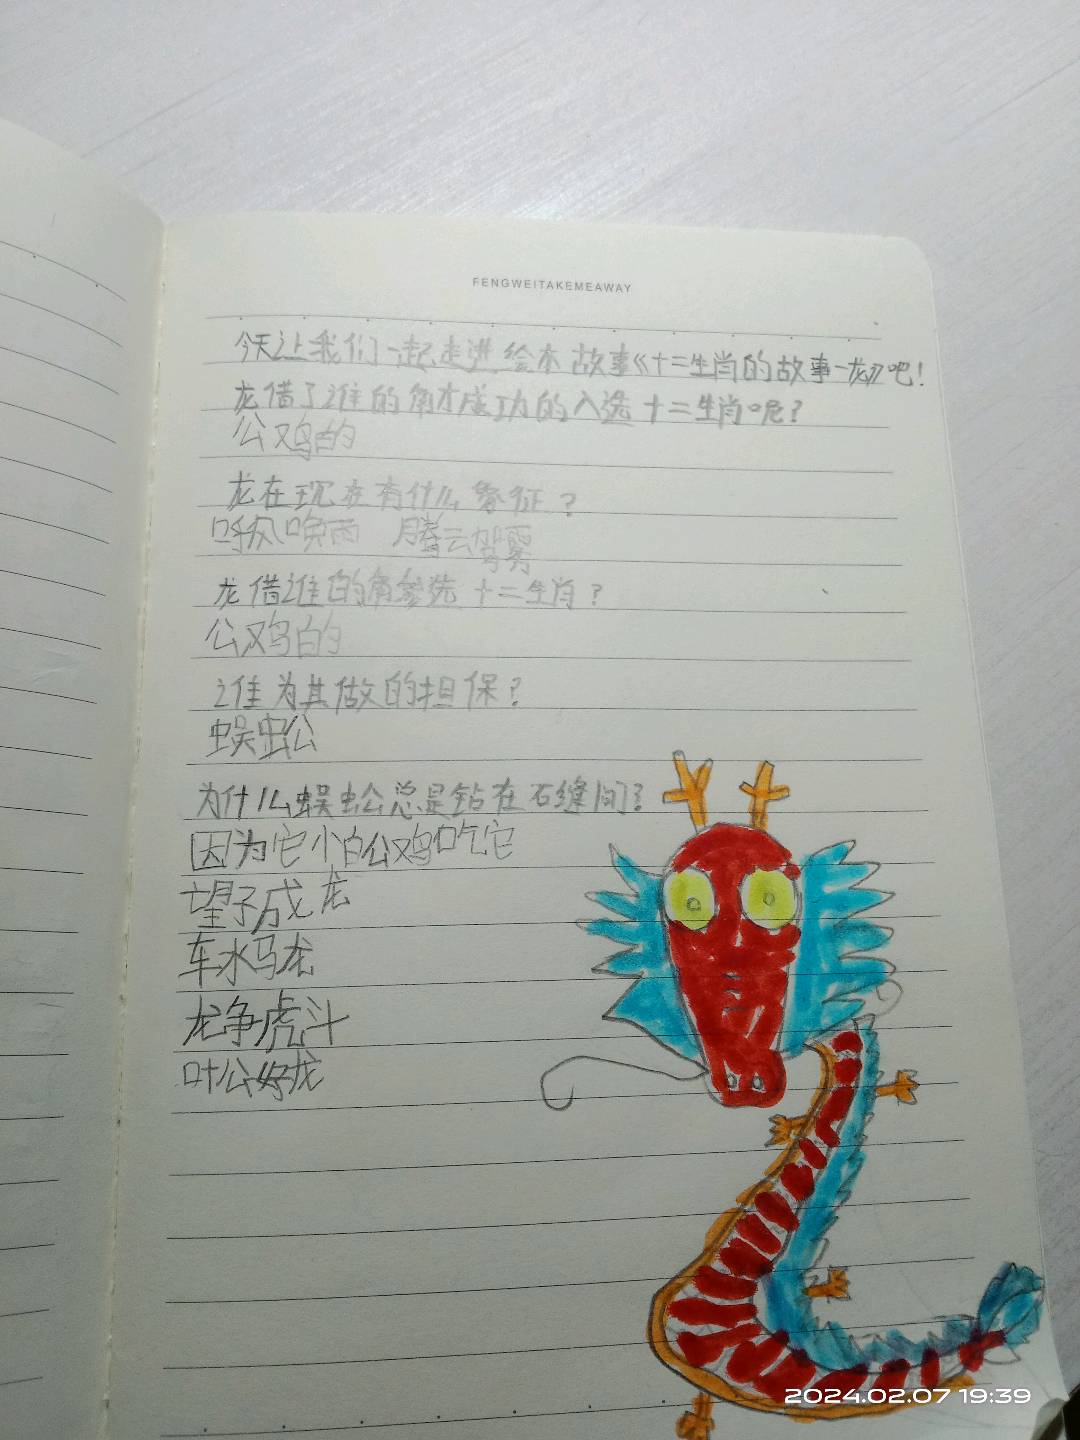 FENGWEITAKEMEAWAY
今天让我们一起走进绘本故事《十二生肖的故事-龙》吧！
龙借了谁的角才成功的入选十二生肖呢？
公鸡的
龙在现在有什么象征？
呼风唤雨 腾云驾雾
龙借谁的角参选十二生肖？
公鸡的
谁为其做的担保？
蜈蚣公
为什么蜈蚣总是钻在石缝间？
因为它怕公鸡吃它
望子成龙
车水马龙
龙争虎斗
叶公好龙
2024.02.07 19:39